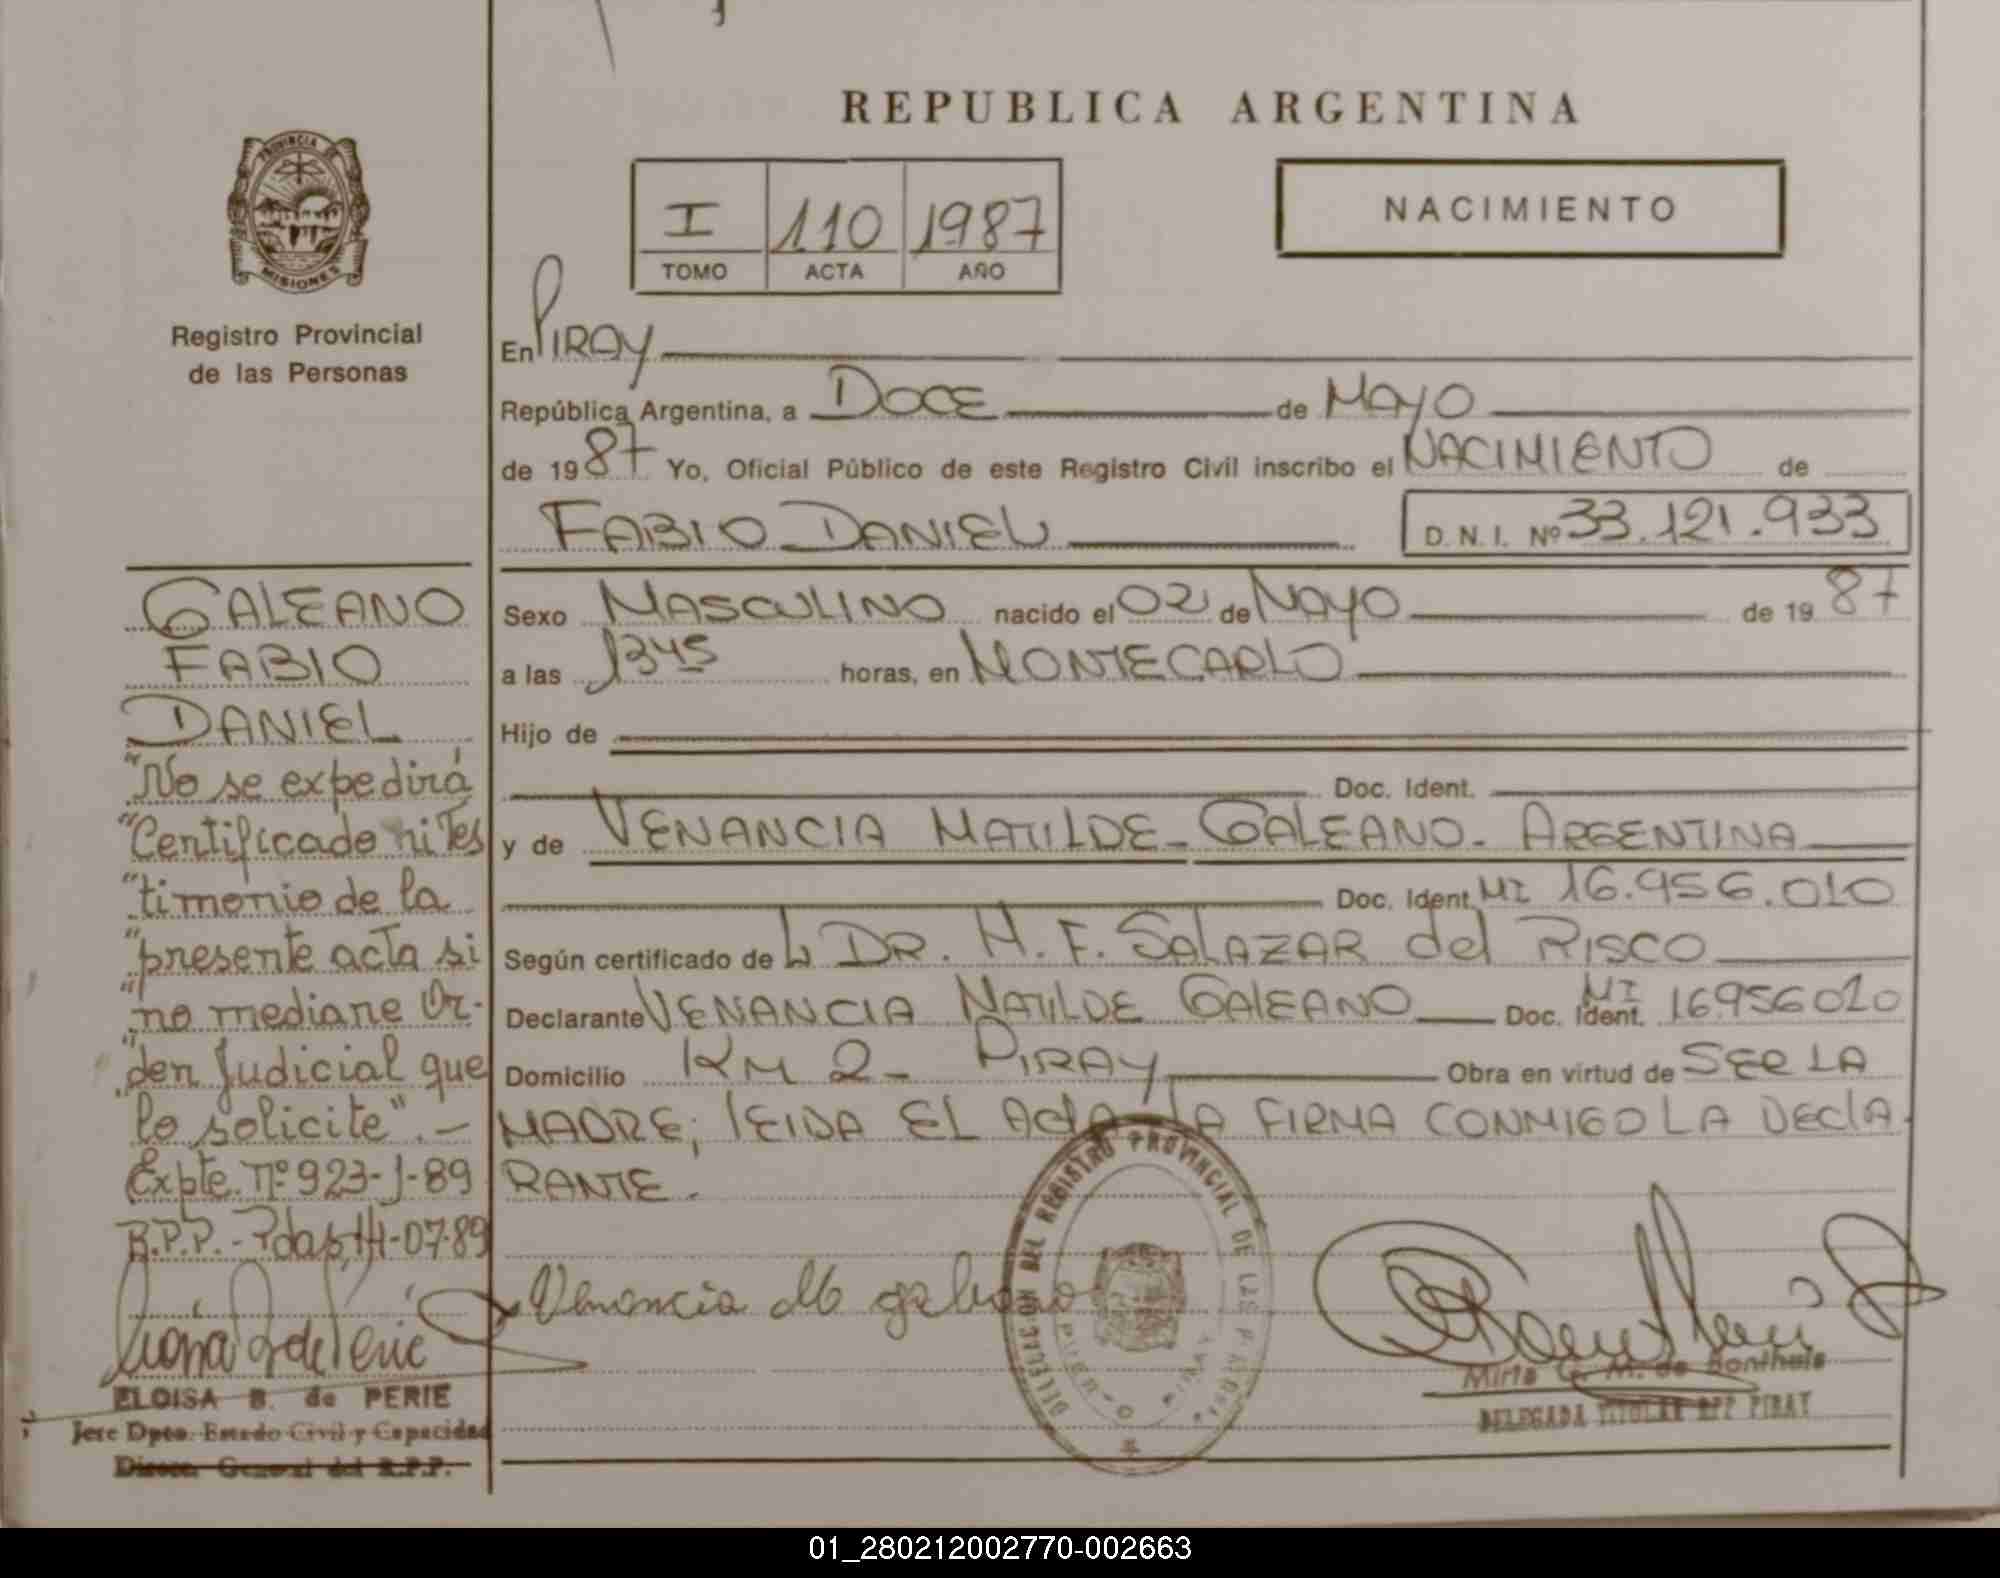 REPUBLICA ARGENTINA
PROVINCIA DE
MISIONES
Registro Provincial
de las Personas
I 110 1987
TOMO ACTA AÑO
NACIMIENTO
En PIRAY
República Argentina, a DOCE de MAYO
de 1987 Yo, Oficial Público de este Registro Civil inscribo el NACIMIENTO de
FABIO DANIEL D. N. I. Nº 33.121.933
Sexo MASCULINO nacido el 02 de MAYO de 1987
a las 1345 horas, en MONTECARLO
Hijo de
Doc. Ident.
y de VENANCIA MATILDE - GALEANO - ARGENTINA
Doc. Ident. MI 16.956.010
Según certificado de DR. H. F. SALAZAR del RISCO
Declarante VENANCIA MATILDE GALEANO Doc. Ident. MI 16956010
Domicilio KM 2 - PIRAY Obra en virtud de SER LA
MADRE; lEIDA EL ActA, LA FIRMA CONMIGO LA DEClA
RANTE.
Venancia M galeano
DEL REGISTRO PROVINCIAL DE LAS
Mirta G. M. de
DELEGADA TITULAR RPP PIRAY
GALEANO
FABIO
DANIEL
"No se expedirá
"Certificado ni Tes
"timonio de la
"presente acta si
"no mediare Or-
"den Judicial que
"lo solicite".-
Expte. Nº 923-J-89
R.P.P.- Pdas, 14-07-89
ELOISA B. de PERIE
Jefe Dpto. Estado Civil y Capacidad
General del R.P.P.
01_280212002770-002663